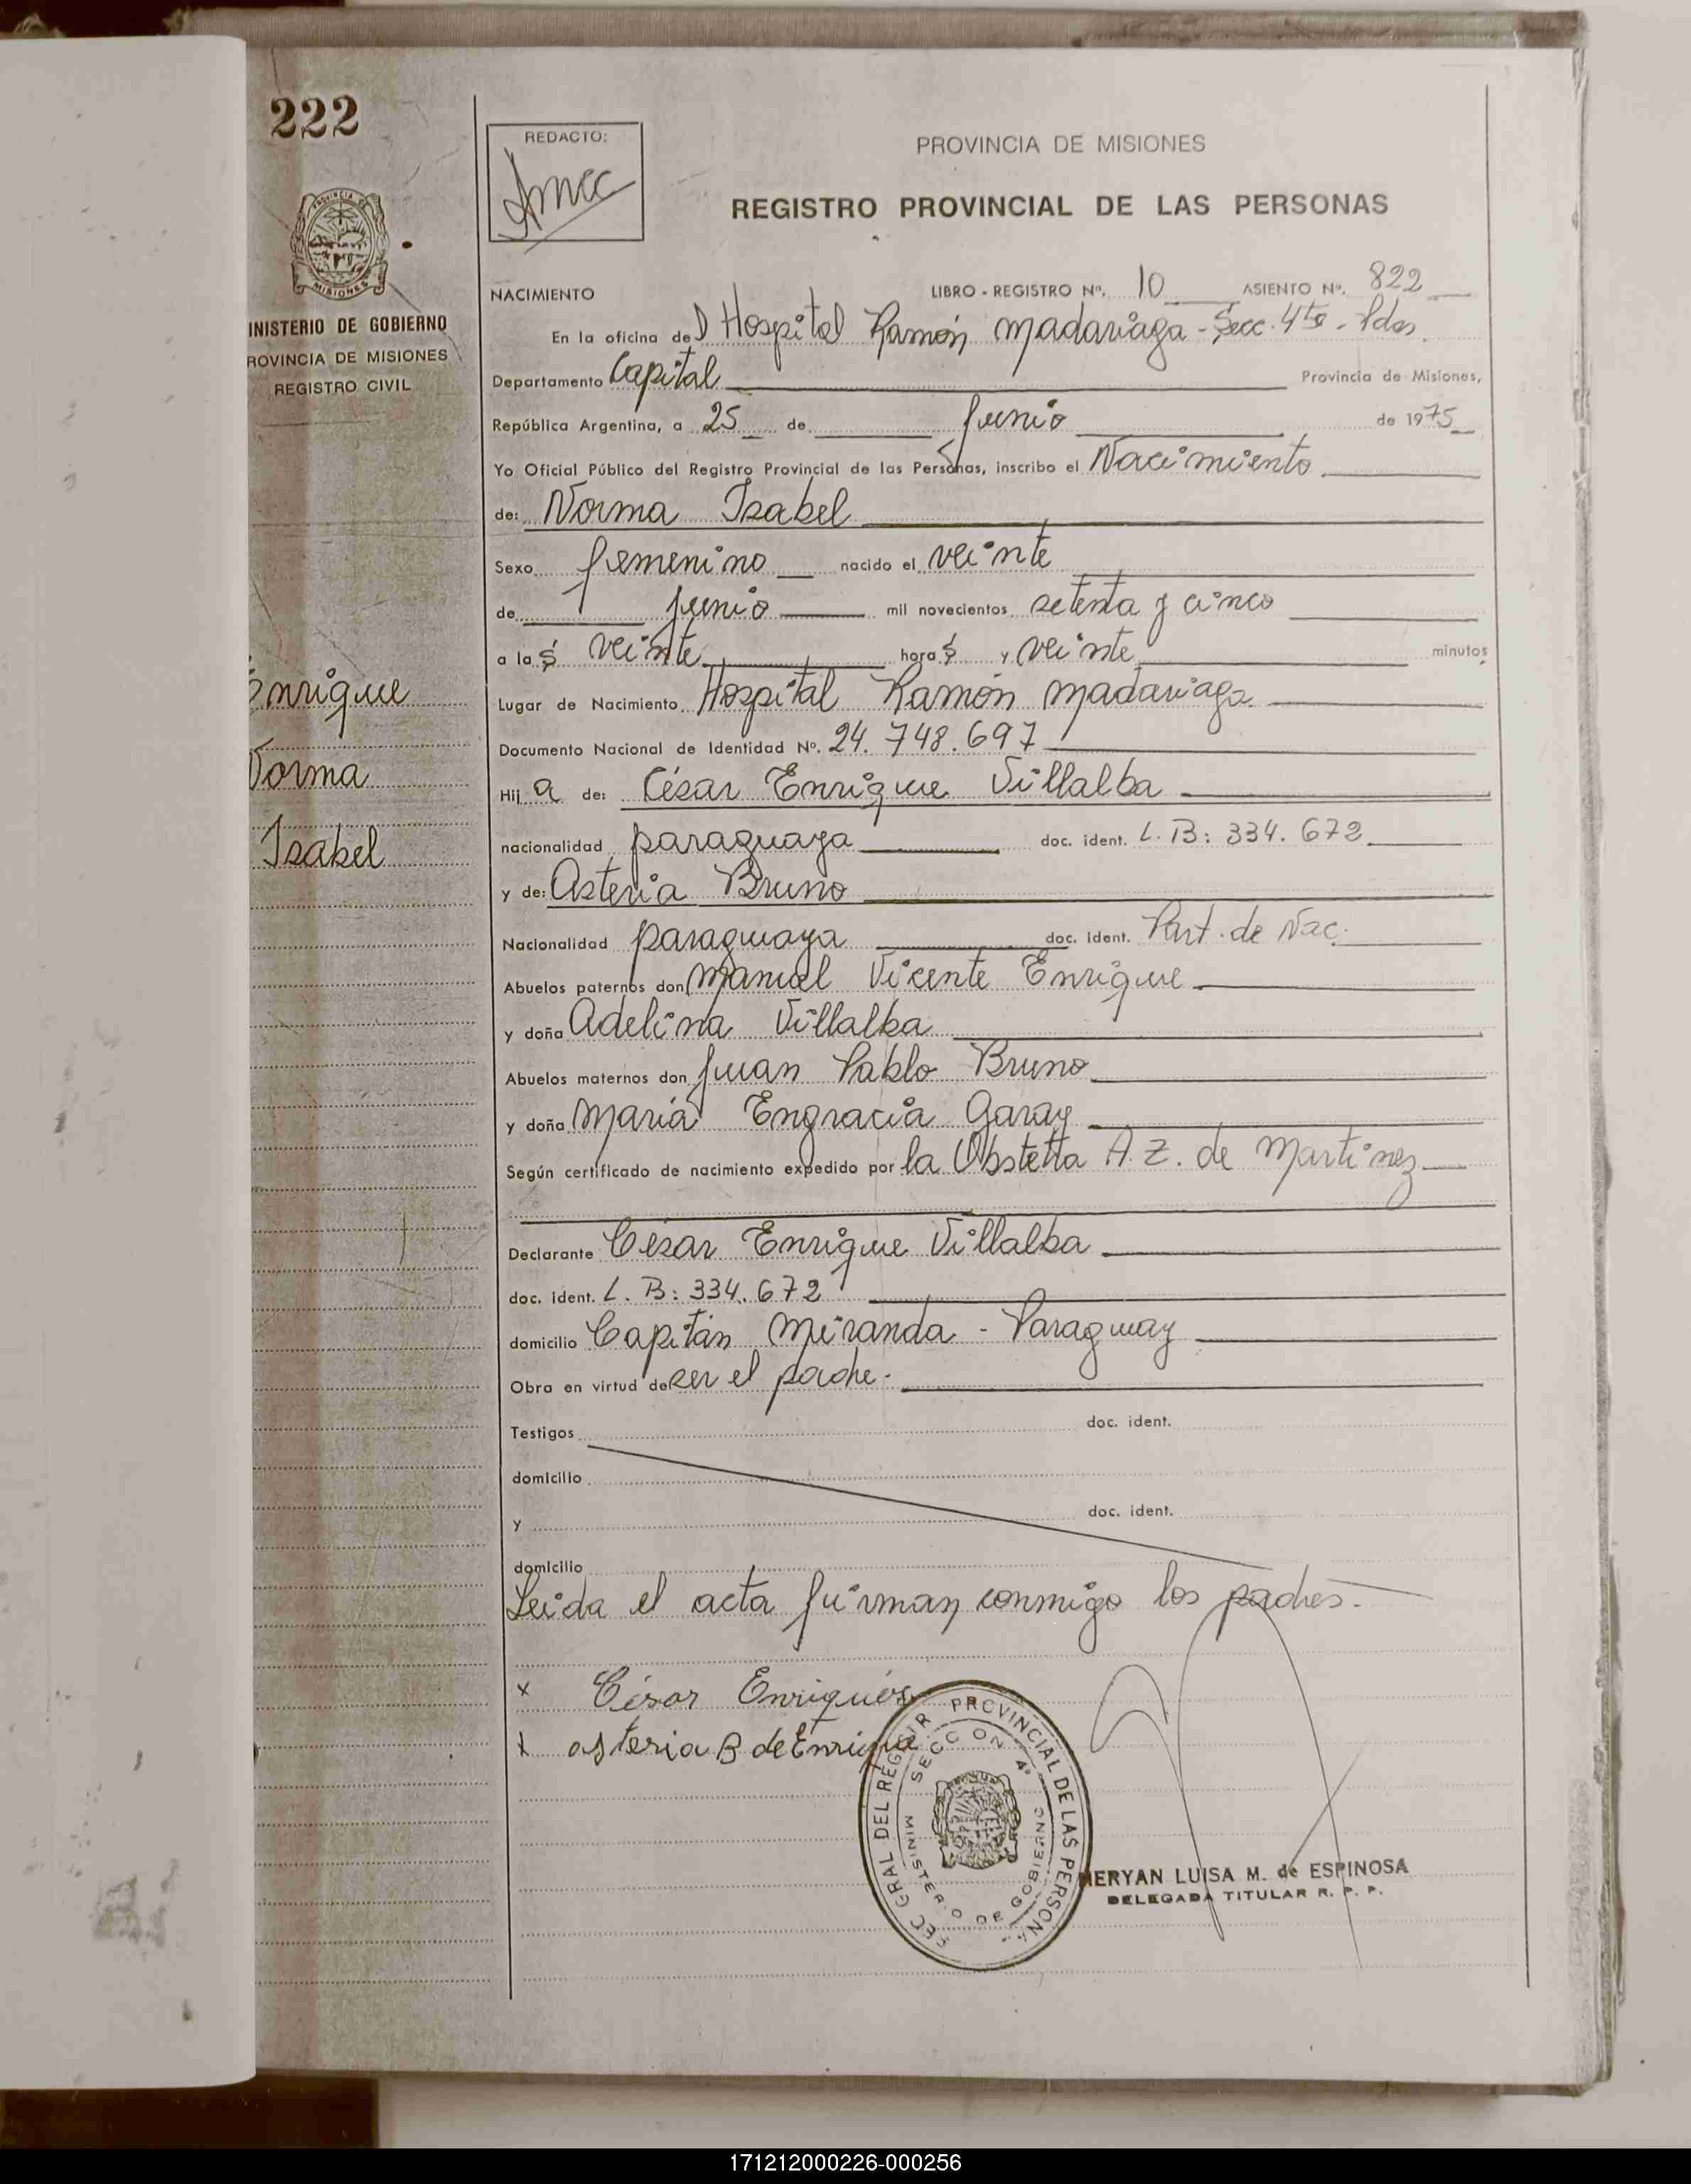 222
MINISTERIO DE GOBIERNO
PROVINCIA DE MISIONES
REGISTRO CIVIL
Enrique
Norma
Isabel
REDACTO:
PROVINCIA DE MISIONES
REGISTRO PROVINCIAL DE LAS PERSONAS
NACIMIENTO LIBRO - REGISTRO Nº. 10 ASIENTO Nº. 822
En la oficina del Hospital Ramón Madariaga - Secc. 4ta - Pdas.
Departamento Capital Provincia de Misiones,
República Argentina, a 25 de Junio de 1975
Yo Oficial Público del Registro Provincial de las Personas, inscribo el Nacimiento
de: Norma Isabel
Sexo femenino nacido el veinte
de junio mil novecientos setenta y cinco
a las veinte horas y veinte minutos
Lugar de Nacimiento Hospital Ramón Madariaga
Documento Nacional de Identidad Nº. 24.748.697
Hij a de: César Enrique Villalba
nacionalidad paraguaya doc. ident. L. B: 334.672
y de: Asteria Bruno
Nacionalidad paraguaya doc. ident. Part. de Nac.
Abuelos paternos don Manuel Vicente Enrique
y doña Adelina Villalba
Abuelos maternos don Juan Pablo Bruno
y doña María Engracia Garay
Según certificado de nacimiento expedido por la Obstetta A Z. de Martinez
Declarante César Enrique Villalba
doc. ident. L. B: 334.672
domicilio Capitán Miranda - Paraguay
Obra en virtud de ser el padre.
Testigos doc. ident.
domicilio
y doc. ident.
domicilio
Leida el acta firman conmigo los padres.
x César Enriques
x asteria B de Enrique
SEC GRAL DEL REGISTR PROVINCIAL DE LAS PERSONAS
SECCION 4º
MINISTERIO DE GOBIERNO
MERYAN LUISA M. de ESPINOSA
DELEGADA TITULAR R. P. P.
171212000226-000256